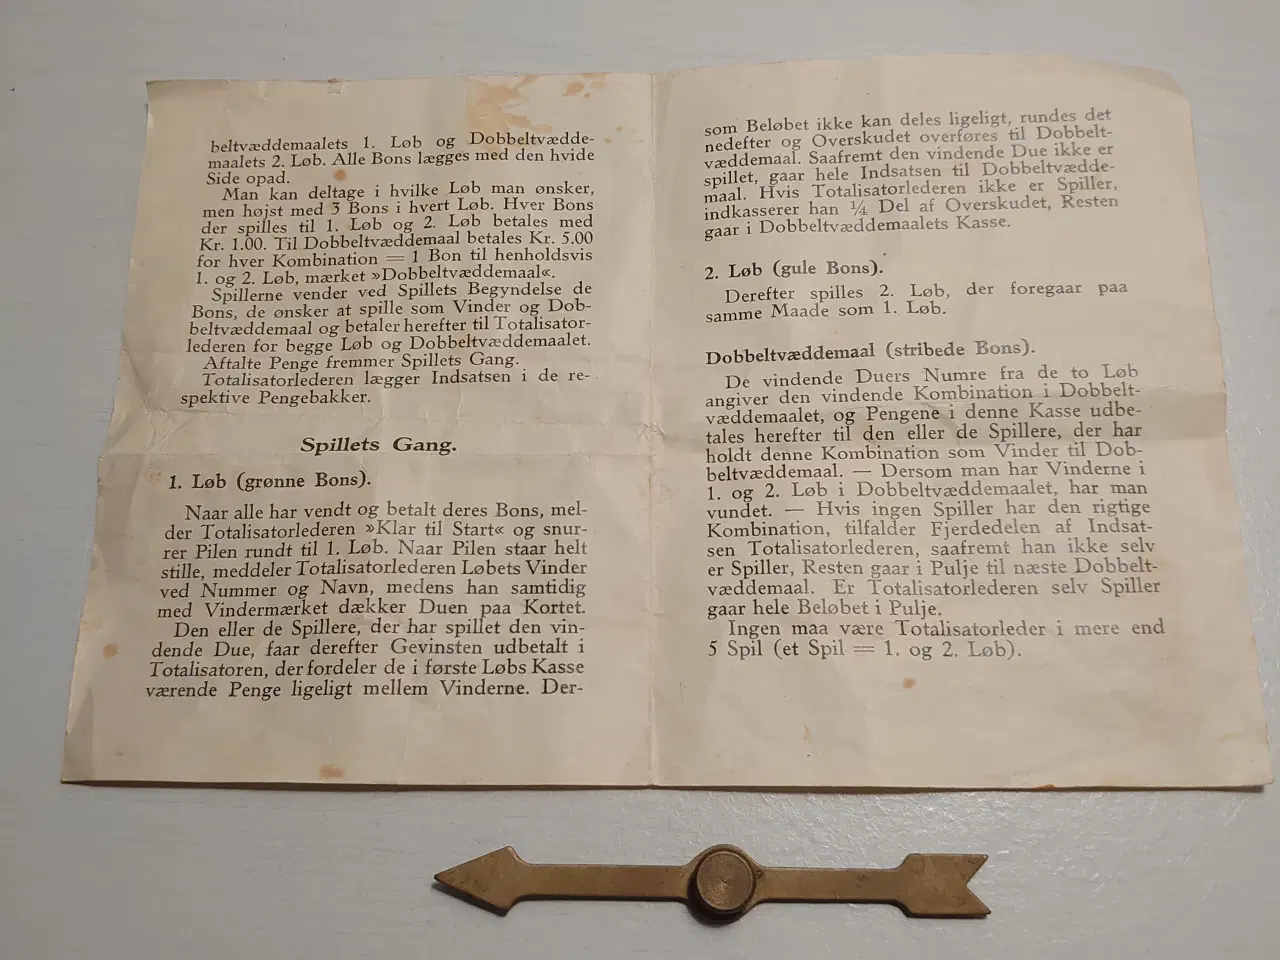 beltvæddemaalets 1. Løb og Dobbeltvædde-
maalets 2. Løb. Alle Bons lægges med den hvide
Side opad.
Man kan deltage i hvilke Løb man ønsker,
men højst med 3 Bons i hvert Løb. Hver Bons
der spilles til 1. Løb og 2. Løb betales med
Kr. 1.00. Til Dobbeltvæddemaal betales Kr. 5.00
for hver Kombination = 1 Bon til henholdsvis
1. og 2. Løb, mærket »Dobbeltvæddemaal«.
Spillerne vender ved Spillets Begyndelse de
Bons, de ønsker at spille som Vinder og Dob-
beltvæddemaal og betaler herefter til Totalisator-
lederen for begge Løb og Dobbeltvæddemaalet.
Aftalte Penge fremmer Spillets Gang.
Totalisatorlederen lægger Indsatsen i de re-
spektive Pengebakker.
Spillets Gang.
1. Løb (grønne Bons).
Naar alle har vendt og betalt deres Bons, mel-
der Totalisatorlederen »Klar til Start« og snur-
rer Pilen rundt til 1. Løb. Naar Pilen staar helt
stille, meddeler Totalisatorlederen Løbets Vinder
ved Nummer og Navn, medens han samtidig
med Vindermærket dækker Duen paa Kortet.
Den eller de Spillere, der har spillet den vin-
dende Due, faar derefter Gevinsten udbetalt i
Totalisatoren, der fordeler de i første Løbs Kasse
værende Penge ligeligt mellem Vinderne. Der-
som Beløbet ikke kan deles ligeligt, rundes det
nedefter og Overskudet overføres til Dobbelt-
væddemaal. Saafremt den vindende Due ikke er
spillet, gaar hele Indsatsen til Dobbeltvædde-
maal. Hvis Totalisatorlederen ikke er Spiller,
indkasserer han ¼ Del af Overskudet, Resten
gaar i Dobbeltvæddemaalets Kasse.
2. Løb (gule Bons).
Derefter spilles 2. Løb, der foregaar paa
samme Maade som 1. Løb.
Dobbeltvæddemaal (stribede Bons).
De vindende Duers Numre fra de to Løb
angiver den vindende Kombination i Dobbelt-
væddemaalet, og Pengene i denne Kasse udbe-
tales herefter til den eller de Spillere, der har
holdt denne Kombination som Vinder til Dob-
beltvæddemaal. — Dersom man har Vinderne i
1. og 2. Løb i Dobbeltvæddemaalet, har man
vundet. — Hvis ingen Spiller har den rigtige
Kombination, tilfalder Fjerdedelen af Indsat-
sen Totalisatorlederen, saafremt han ikke selv
er Spiller, Resten gaar i Pulje til næste Dobbelt-
væddemaal. Er Totalisatorlederen selv Spiller
gaar hele Beløbet i Pulje.
Ingen maa være Totalisatorleder i mere end
5 Spil (et Spil = 1. og 2. Løb).